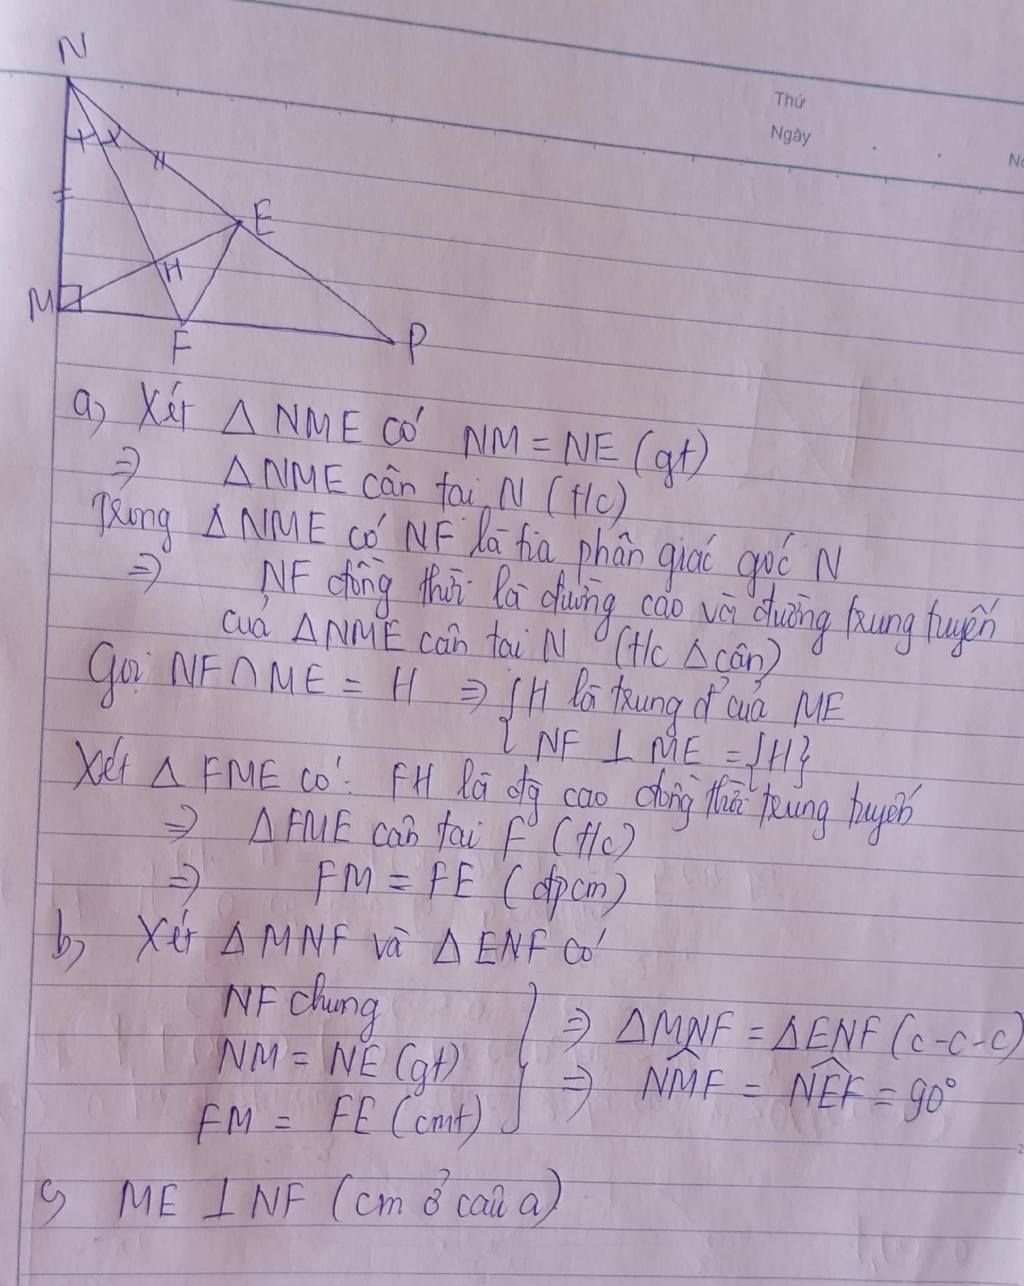 N
Thứ
Ngày
Nă
E
H
M
F
P
a, Xét Δ NME có NM = NE (gt)
⇒ ΔNME cân tại N (t/c)
Trong ΔNME có NF là tia phân giác góc N
⇒ NF đồng thời là đường cao và đường trung tuyến
của ΔNME cân tại N (t/c Δ cân)
Gọi NF∩ME = H ⇒ { H là trung đ' của ME
{ NF ⊥ ME = {H}
Xét Δ FME có: FH là đg cao đồng thời trung tuyến
⇒ ΔFME cân tại F (t/c)
⇒ FM = FE (đpcm)
b, Xét ΔMNF và ΔENF có
NF chung
NM = NE (gt) } ⇒ ΔMNF = ΔENF (c-c-c)
FM = FE (cmt) ⇒ NMF = NEF = 90°
c, ME ⊥ NF (cm ở câu a)